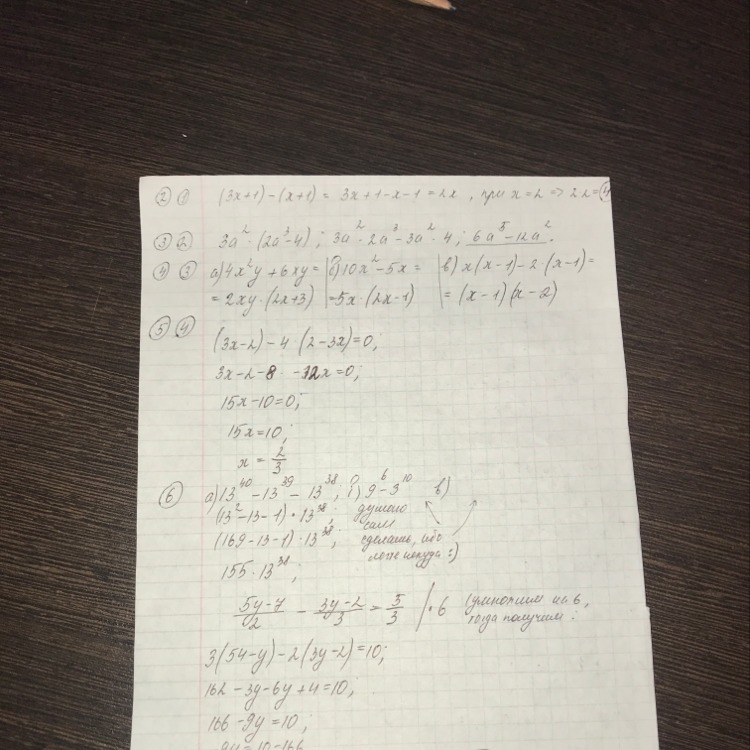 ② ① (3x+1)-(x+1) = 3x+1-x-1 = 2x, при x=2 => 2x=4
③ ② 3a²·(2a³-4); 3a²·2a³-3a²·4; 6a⁵-12a².
④ ③ а) 4x²y+6xy= | б) 10x²-5x= | в) x(x-1)-2·(x-1)=
=2xy·(2x+3) | =5x·(2x-1) | =(x-1)(x-2)
⑤ ④
(3x-2)-4·(2-3x)=0;
3x-2-8 -12x=0;
15x-10=0;
15x=10;
x=2/3
⑥ а) 13⁴⁰-13³⁹-13³⁸; б) 9⁶-3¹⁰ в)
(13²-13-1)·13³⁸; думаю
(169-13-1)·13³⁸; сам
сделаешь, ибо
155·13³⁸; легче некуда :)
(5y-7)/2 - (3y-2)/3 = 5/3 |·6 (умножим на 6,
тогда получим:
3(54-y)-2(3y-2)=10;
162-3y-6y+4=10;
166-9y=10;